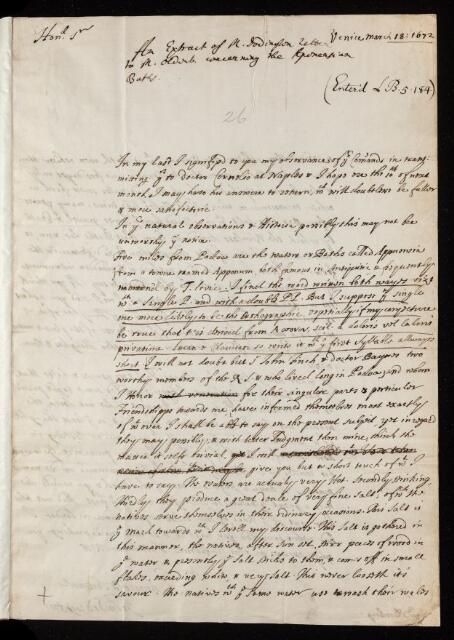 Hon.d Sr
Venice March 18: 1672
An Extract of Mr. Dodington Letter
to Mr. Oldenb. concerning the Aponensian
Baths.
(Enter'd L B 5. 184)
26
In my last I signifyed to you my observance of ye Comands in trans-
mitting ye to Doctor Cornelio at Naples & I hope ere the of next
month I may have his answere to return, wch will doubtless be fuller
& more satisfactorie
In ye naturall observations & Histories possibly this may not be
unworthy ye notice.
five miles from Padoua are the waters or Baths called Apponensia
from a towne named Apponum, both famous in Antiquitie, & frequently
mentioned by T. Livie. I find the word written both wayes vizt
wth a Single P. and with a double P.P. But I suppose ye single
one more likely to be the orthographie, especially if my conjecture
be true that it is derived from
privativa. Lucan & Claudian so write it wth ye first syllable allwayes
short. I will not doubt but Sr John Finch & Doctor Baynes two
worthy members of the R S. & who lived long in Padoua, and whom
I honor for their singular parts & perticuler
Friendshipps towards me, have informed themselves most exactly
of wt ever I shall be able to say on the present subject, yet in regard
they may possibly, & with better Judgment then mine, think the
theme it selfe trivial, I will
give you but a short touch of wt I
have to say. The waters are actually very Hot. Secondly stinking
thirdly they produce a great deale of very fine Salt, of wch the
natives serve themselves in their ordinary occasions. This Salt is
ye mark towards wch I levell my discourse. This Salt is gathered in
this manner, the natives, after Sun set, stirr peeces of wood in
ye water & presently ye Salt sticks to them, & comes off in small
flakes, exceeding white, & very salt. This never looseth its
savour. The natives wth ye same water use to wash their walls